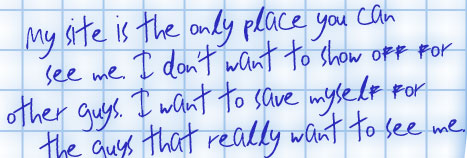 My site is the only place you can
see me. I don't want to show off for
other guys. I want to save myself for
the guys that really want to see me.